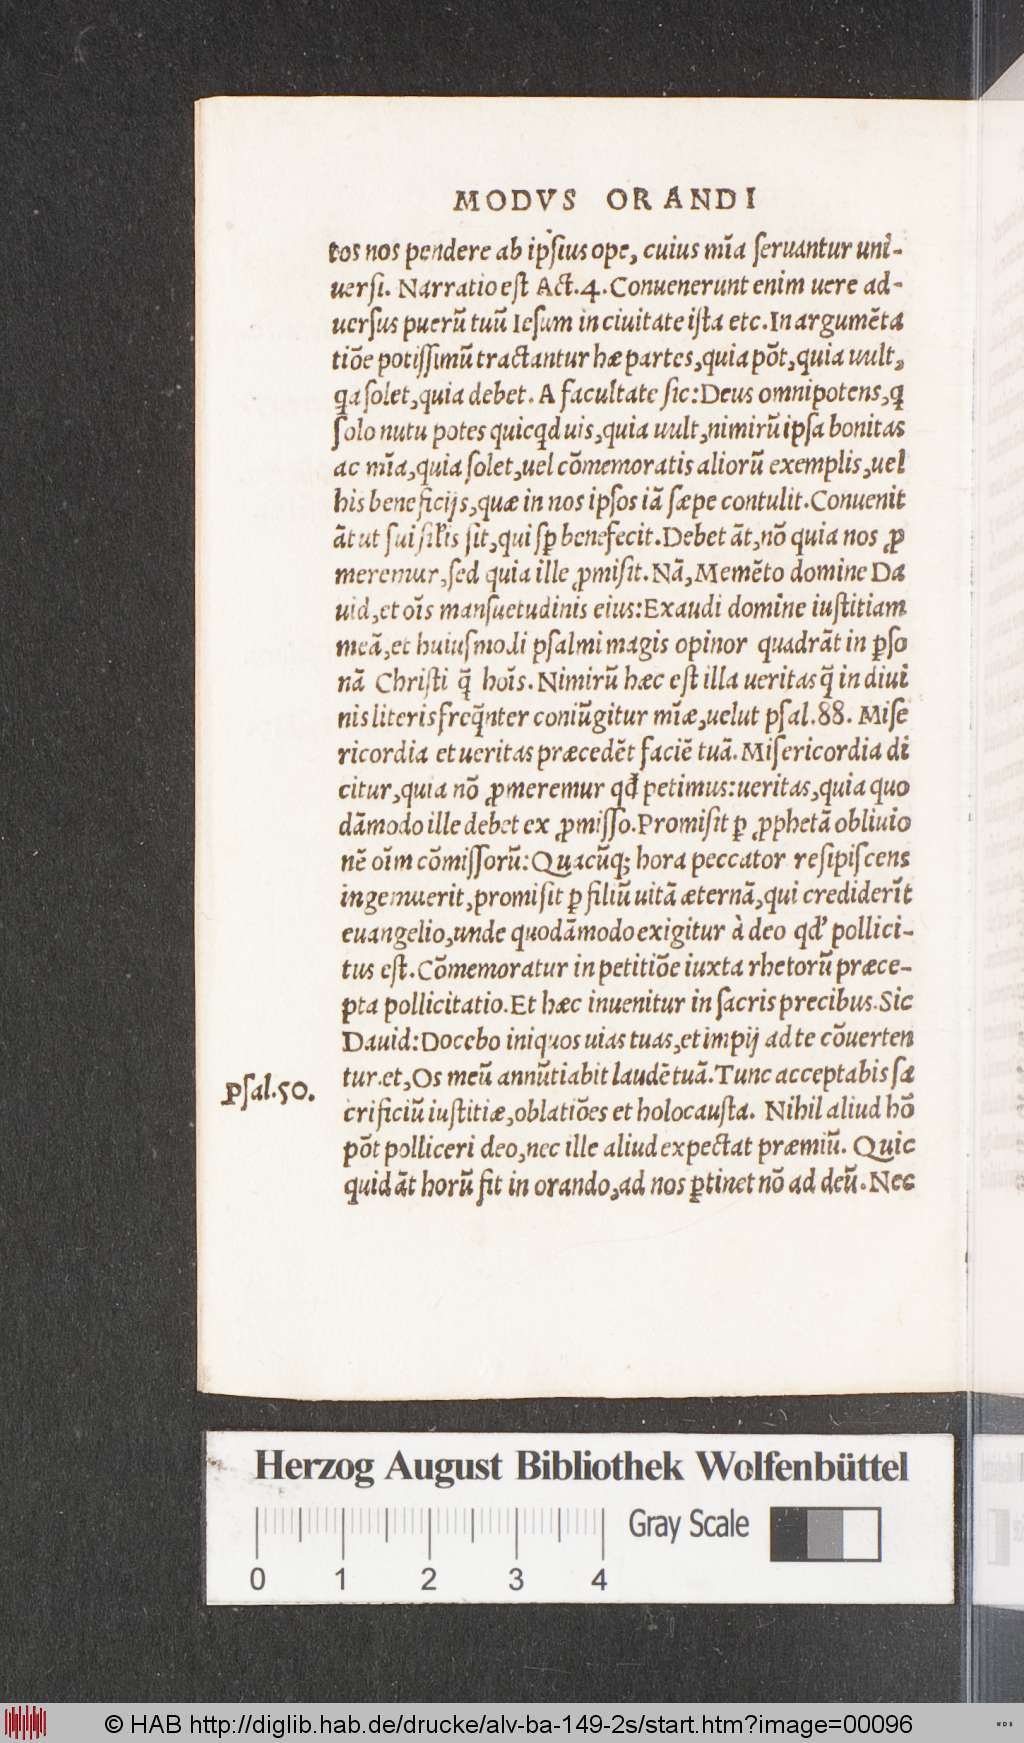 MODVS ORANDI
tos nos pendere ab ipsius ope, cuius mĩa seruantur uni-
uersi. Narratio est Act.4. Conuenerunt enim uere ad-
uersus puerũ tuũ Iesum in ciuitate ista etc. In argumẽta
tiõe potissimũ tractantur hæ partes, quia põt, quia uult,
qa solet, quia debet. A facultate sic: Deus omnipotens, q
solo nutu potes quicqd uis, quia uult, nimirũ ipsa bonitas
ac mĩa, quia solet, uel cõmemoratis aliorũ exemplis, uel
his beneficijs, quæ in nos ipsos iã sæpe contulit. Conuenit
ãt ut sui sil'is sit, qui sꝑ benefecit. Debet ãt, nõ quia nos ꝓ
meremur, sed quia ille ꝓmisit. Nã, Memẽto domine Da
uid, et oĩs mansuetudinis eius: Exaudi domine iustitiam
meã, et huiusmodi psalmi magis opinor quadrãt in ꝑso
nã Christi q̃ hoĩs. Nimirũ hæc est illa ueritas q̃ in diui
nis literis freq̃nter coniũgitur mĩæ, uelut psal.88. Mise
ricordia et ueritas præcedẽt faciẽ tuã. Misericordia di
citur, quia nõ ꝓmeremur qđ petimus: ueritas, quia quo
dãmodo ille debet ex ꝓmisso. Promisit ꝑ ꝓphetã obliuio
nẽ oĩm cõmissorũ: Quacũq; hora peccator resipiscens
ingemuerit, promisit ꝑ filiũ uitã æternã, qui crediderĩt
euangelio, unde quodãmodo exigitur à deo qd' pollici-
tus est. Cõmemoratur in petitiõe iuxta rhetorũ præce-
pta pollicitatio. Et hæc inuenitur in sacris precibus. Sic
Dauid: Docebo iniquos uias tuas, et impij ad te cõuerten
tur. et, Os meũ annũtiabit laudẽ tuã. Tunc acceptabis sa
Psal.50.
crificiũ iustitiæ, oblatiões et holocausta. Nihil aliud hõ
põt polliceri deo, nec ille aliud expectat præmiũ. Quic
quid ãt horũ fit in orando, ad nos ꝑtinet nõ ad deũ. Nec
Herzog August Bibliothek Wolfenbüttel
Gray Scale
0 1 2 3 4
© HAB http://diglib.hab.de/drucke/alv-ba-149-2s/start.htm?image=00096